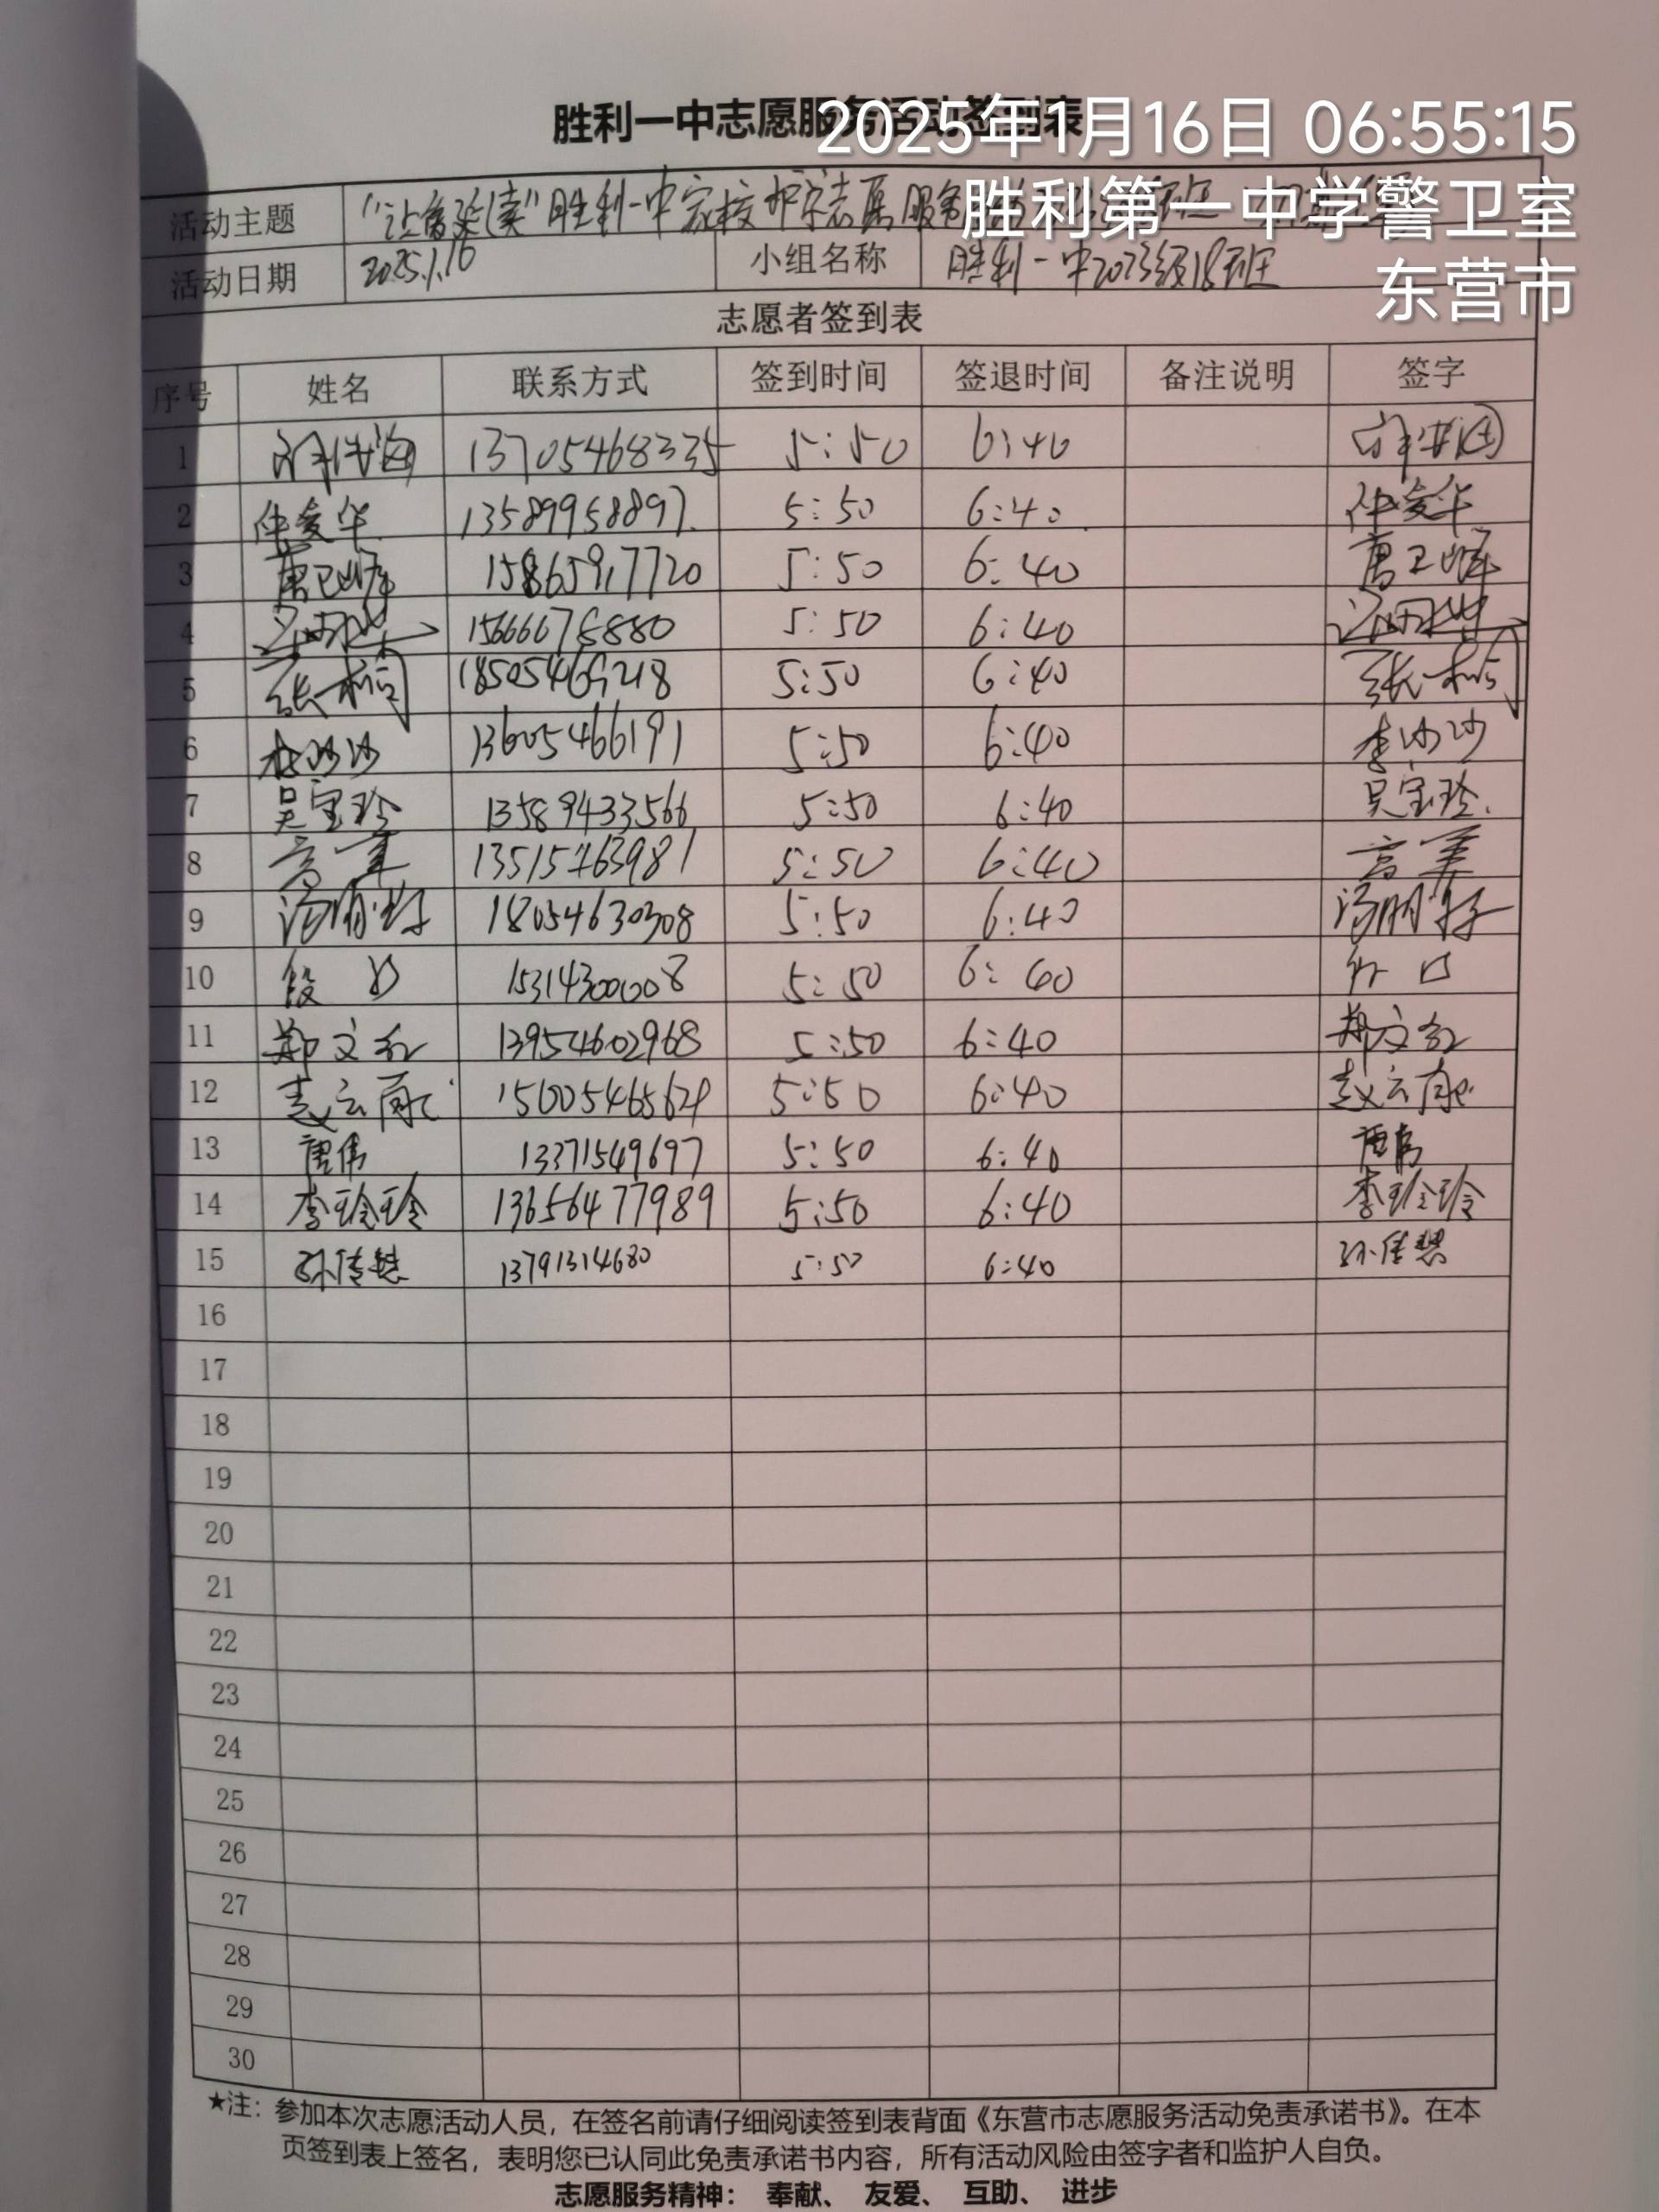 胜利一中志愿服务活动签到表
2025年1月16日 06:55:15
胜利第一中学警卫室
东营市
活动主题 "让爱延续"胜利一中家校护学志愿服务
活动日期 2025.1.16 小组名称 胜利一中2023级18班
志愿者签到表
序号 姓名 联系方式 签到时间 签退时间 备注说明 签字
1 13705468335 5:50 6:40
2 仲爱华 13589958897. 5:50 6:40. 仲爱华
3 唐卫峰 15865917720 5:50 6:40 唐卫峰
4 5:50 6:40
5 张一桐 18505469218 5:50 6:40 张一桐
6 李沙沙 13605466191 5:50 6:40 李沙沙
7 吴宝玲 13589433566 5:50 6:40 吴宝玲.
8 13515463981 5:50 6:40
9 18054630308 5:50 6:40
10 段 15314300008 5:50 6:40
11 郑文红 13954602968 5:50 6:40 郑文红
12 赵云 5:50 6:40 赵云
13 唐伟 13371549697 5:50 6:40 唐伟
14 李玲玲 13656477989 5:50 6:40 李玲玲
15 孙倩 13791314680 5:50 6:40 孙倩
16
17
18
19
20
21
22
23
24
25
26
27
28
29
30
★注：参加本次志愿活动人员，在签名前请仔细阅读签到表背面《东营市志愿服务活动免责承诺书》。在本
页签到表上签名，表明您已认同此免责承诺书内容，所有活动风险由签字者和监护人自负。
志愿服务精神： 奉献、 友爱、 互助、 进步